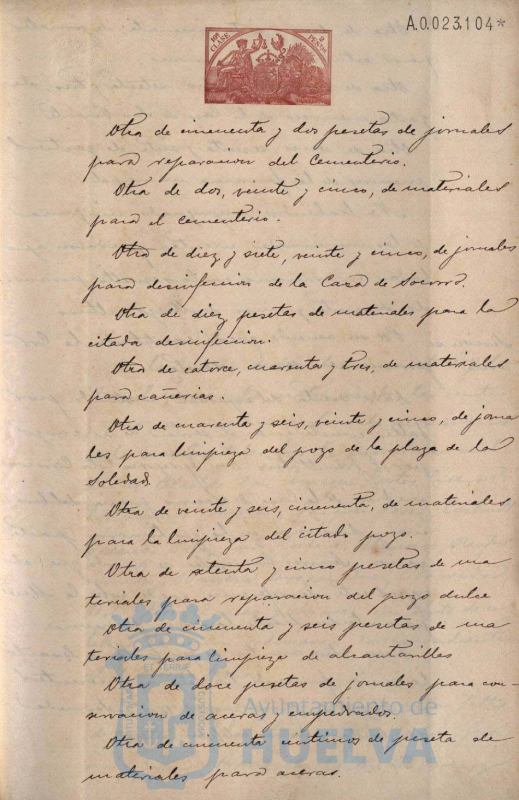 A.0.023.104*
10ª CLASE
2 PESETAS
Otra de cincuenta y dos pesetas de jornales
para reparacion del Cementerio.
Otra de dos, veinte y cinco, de materiales
para el cementerio.
Otra de diez y siete, veinte y cinco, de jornales
para desinfeccion de la Casa de Socorro.
Otra de diez pesetas de materiales para la
citada desinfeccion.
Otra de catorce, cuarenta y tres, de materiales
para cañerias.
Otra de cuarenta y seis, veinte y cinco, de jorna
les para limpieza del pozo de la plaza de la
Soledad.
Otra de veinte y seis, cincuenta, de materiales
para la limpieza del citado pozo.
Otra de setenta y cinco pesetas de ma
teriales para reparacion del pozo dulce
Otra de cincuenta y seis pesetas de ma
teriales para limpieza de alcantarillas
Otra de doce pesetas de jornales para con
servacion de aceras y empedrados.
Otra de cincuenta centimos de peseta de
materiales para aceras.
Ayuntamiento de
HUELVA